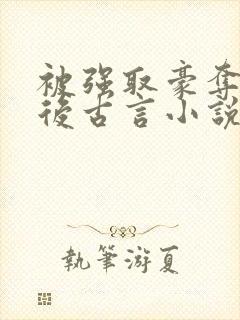 被強取豪奪
後古言小說
執筆游夏